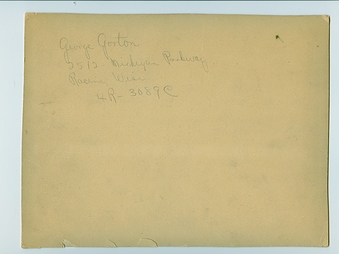 George Gorton
2512 Michigan Parkway
Racine Wisc
4R-3089C